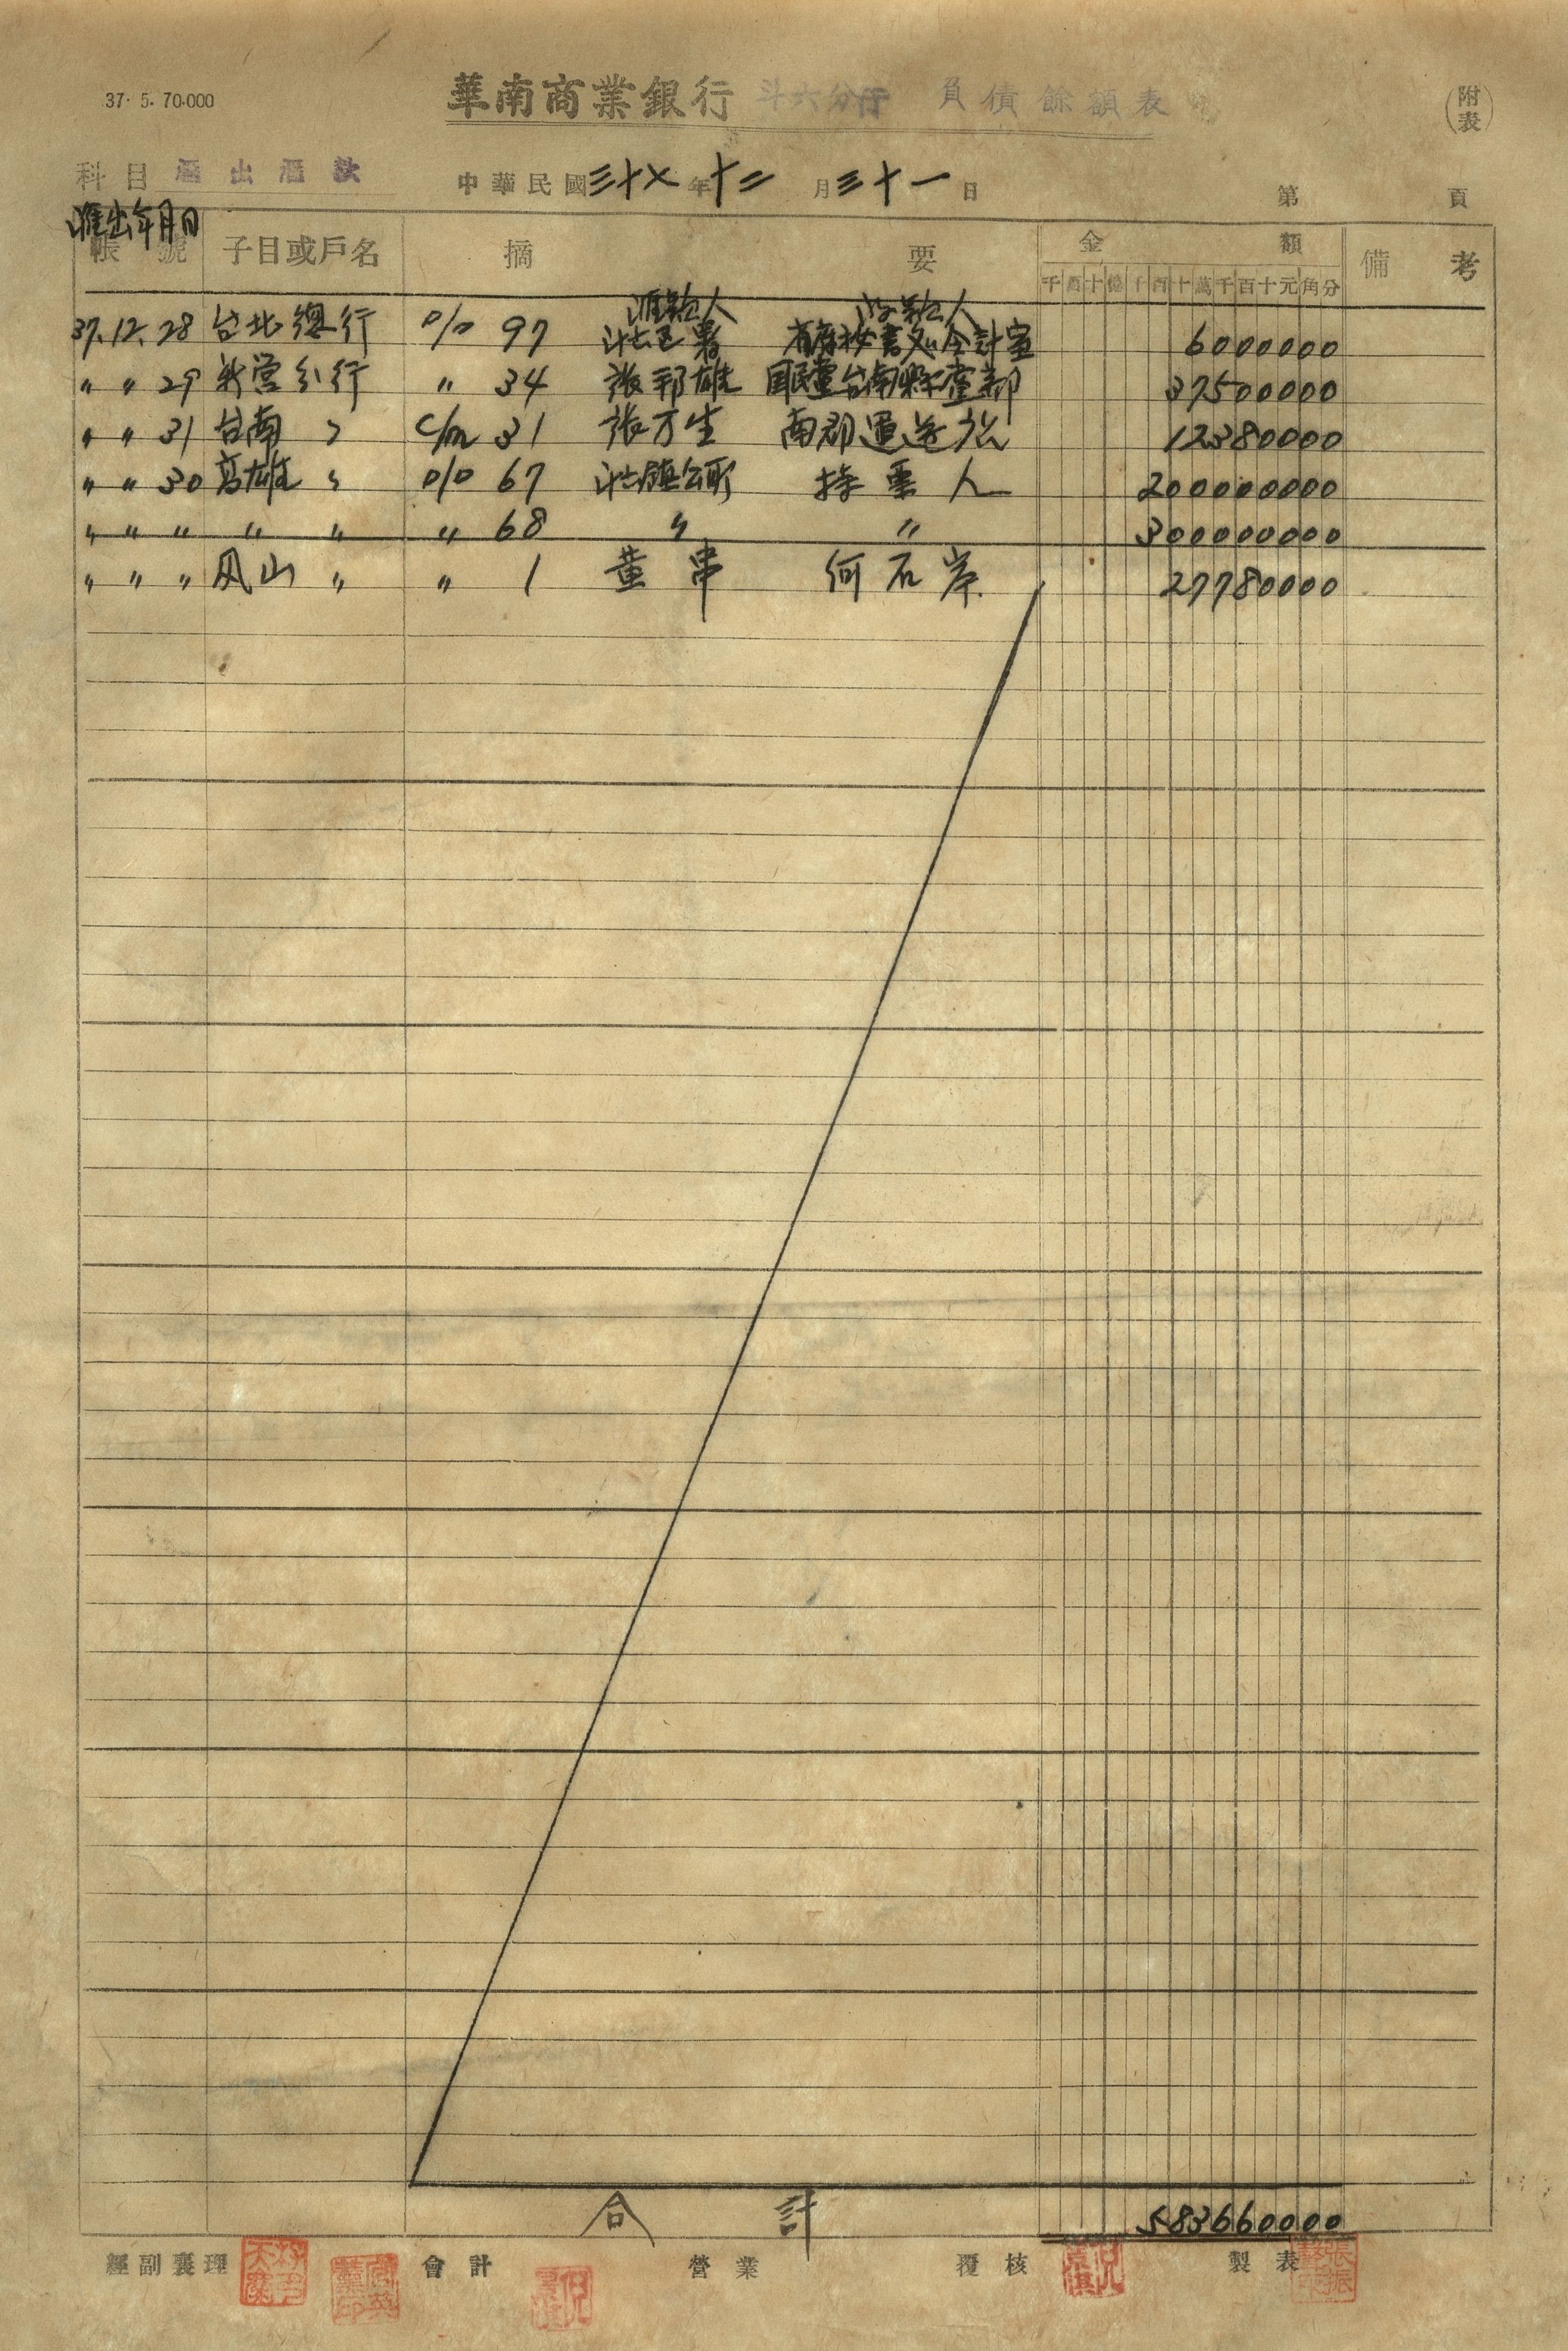 37. 5. 70.000
華南商業銀行 斗六分行 負債餘額表
(附表)
科目 匯出匯款 中華民國三十七年十二月三十一日 第 頁
匯出年月日
帳號 子目或戶名 摘要 金額 備考
千百十億千百十萬千百十元角分
匯款人 收款人
37.12.28 台北總行 D/D 97 斗六區署 會計室 6000000
〃 〃 29 新營分行 〃 34 張邦雄 國民黨台南縣黨部 37500000
〃 〃 31 台南 〃 C/m 31 張万生 南郡運送 12380000
〃 〃 30 高雄 〃 D/D 67 斗六鎮公所 持票人 200000000
〃 〃 〃 〃 〃 〃 68 〃 〃 300000000
〃 〃 〃 凤山 〃 〃 1 黃串 何石岸 27780000
合計 583660000
經副襄理 會計 營業 覆核 製表